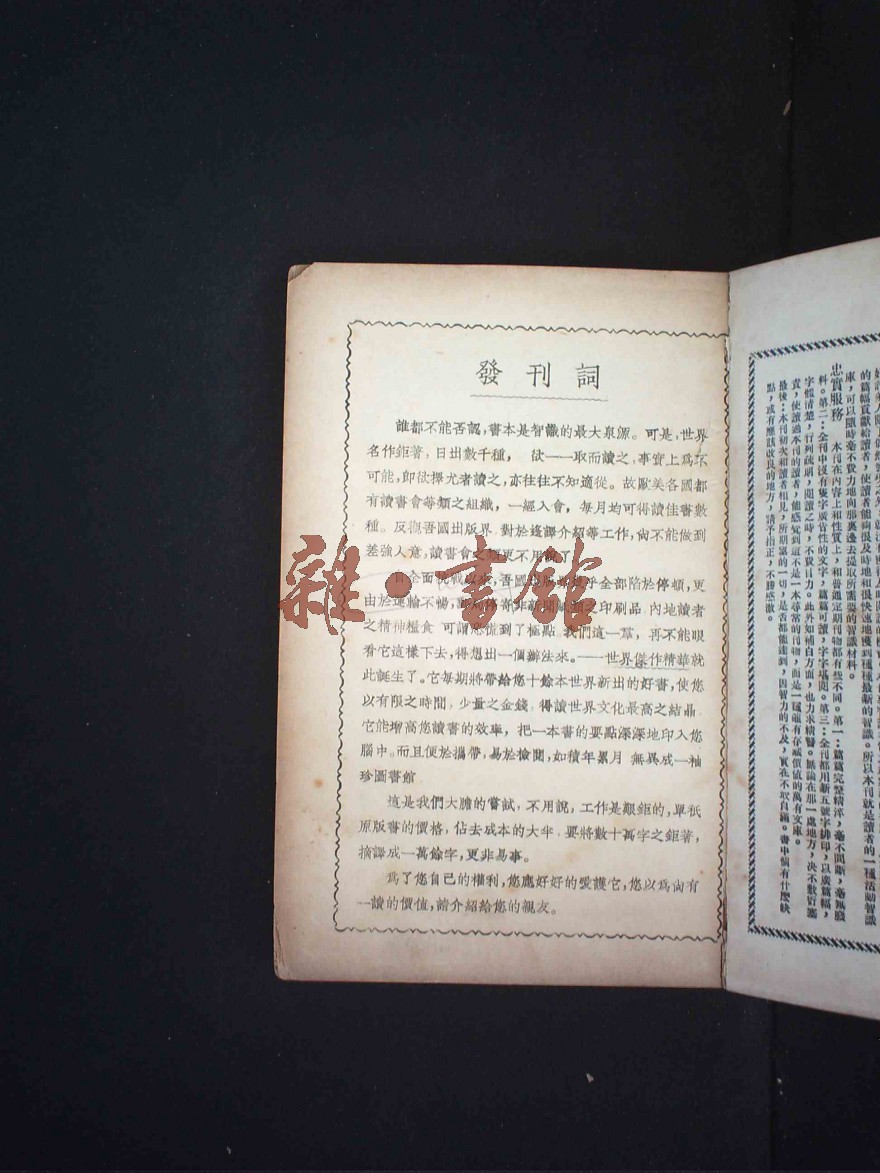 發刊詞
誰都不能否認，書本是智識的最大泉源。可是，世界
名作鉅著，日出數千種，欲一一取而讀之，事實上爲不
可能，卽欲擇尤者讀之，亦往往不知適從。故歐美各國都
有讀書會等類之組織，一經入會，每月均可得讀佳書數
種。反觀吾國出版界 對於迻譯介紹等工作，尙不能做到
差強人意，讀書會之類更不用說了
自全面抗戰以來，吾國 乎全部陷於停頓，更
由於運輸不暢， 寄非新聞紙類之印刷品 內地讀者
之精神糧食 可謂恐慌到了極點 我們這一羣，再不能眼
看它這樣下去，得想出一個辦法來。——世界傑作精華就
此誕生了。它每期將帶給您十餘本世界新出的好書，使您
以有限之時間，少量之金錢，得讀世界文化最高之結晶
它能增高您讀書的效率，把一本書的要點深深地印入您
腦中。而且便於攜帶，易於檢閱，如積年累月 無異成一袖
珍圖書館
這是我們大膽的嘗試，不用說，工作是艱鉅的，單祇
原版書的價格，佔去成本的大半，要將數十萬字之鉅著，
摘譯成一萬餘字，更非易事。
爲了您自己的權利，您應好好的愛護它，您以爲尙有
一讀的價值，請介紹給您的親友。
的篇幅貢獻給讀者，使讀者能夠很及時地很快速地獲到種種最新的智識。所以本刊就是讀者的一種活動智識
庫，可以隨時毫不費力地向那裏邊去提取所需要的智識材料。
忠實服務 本刊在內容上和性質上，和普通定期刊物都有些不同。第一：篇篇完整精淬，毫不間斷，毫無賸
料。第二：全刊中沒有隻字廣告性的文字，篇篇可讀，字字堪閱。第三：全刊都用新五號字排印，以廣篇幅，
字體清楚，行列疏朗，閱讀之時，不費目力。此外如補白方面，也力求精警。無論在那一處地方，決不敷衍塞
責，使讀過本刊的讀者，能感覺到這不是一本尋常的刊物，而是一種確有存藏價值的萬有文庫。
最後：本刊初次和讀者相見，所期望的一切，是否都能達到，因智力的不及，實在不敢自滿。書中倘有什麼缺
點，或有應該改良的地方，請予指正，不勝感激。
雜·書館